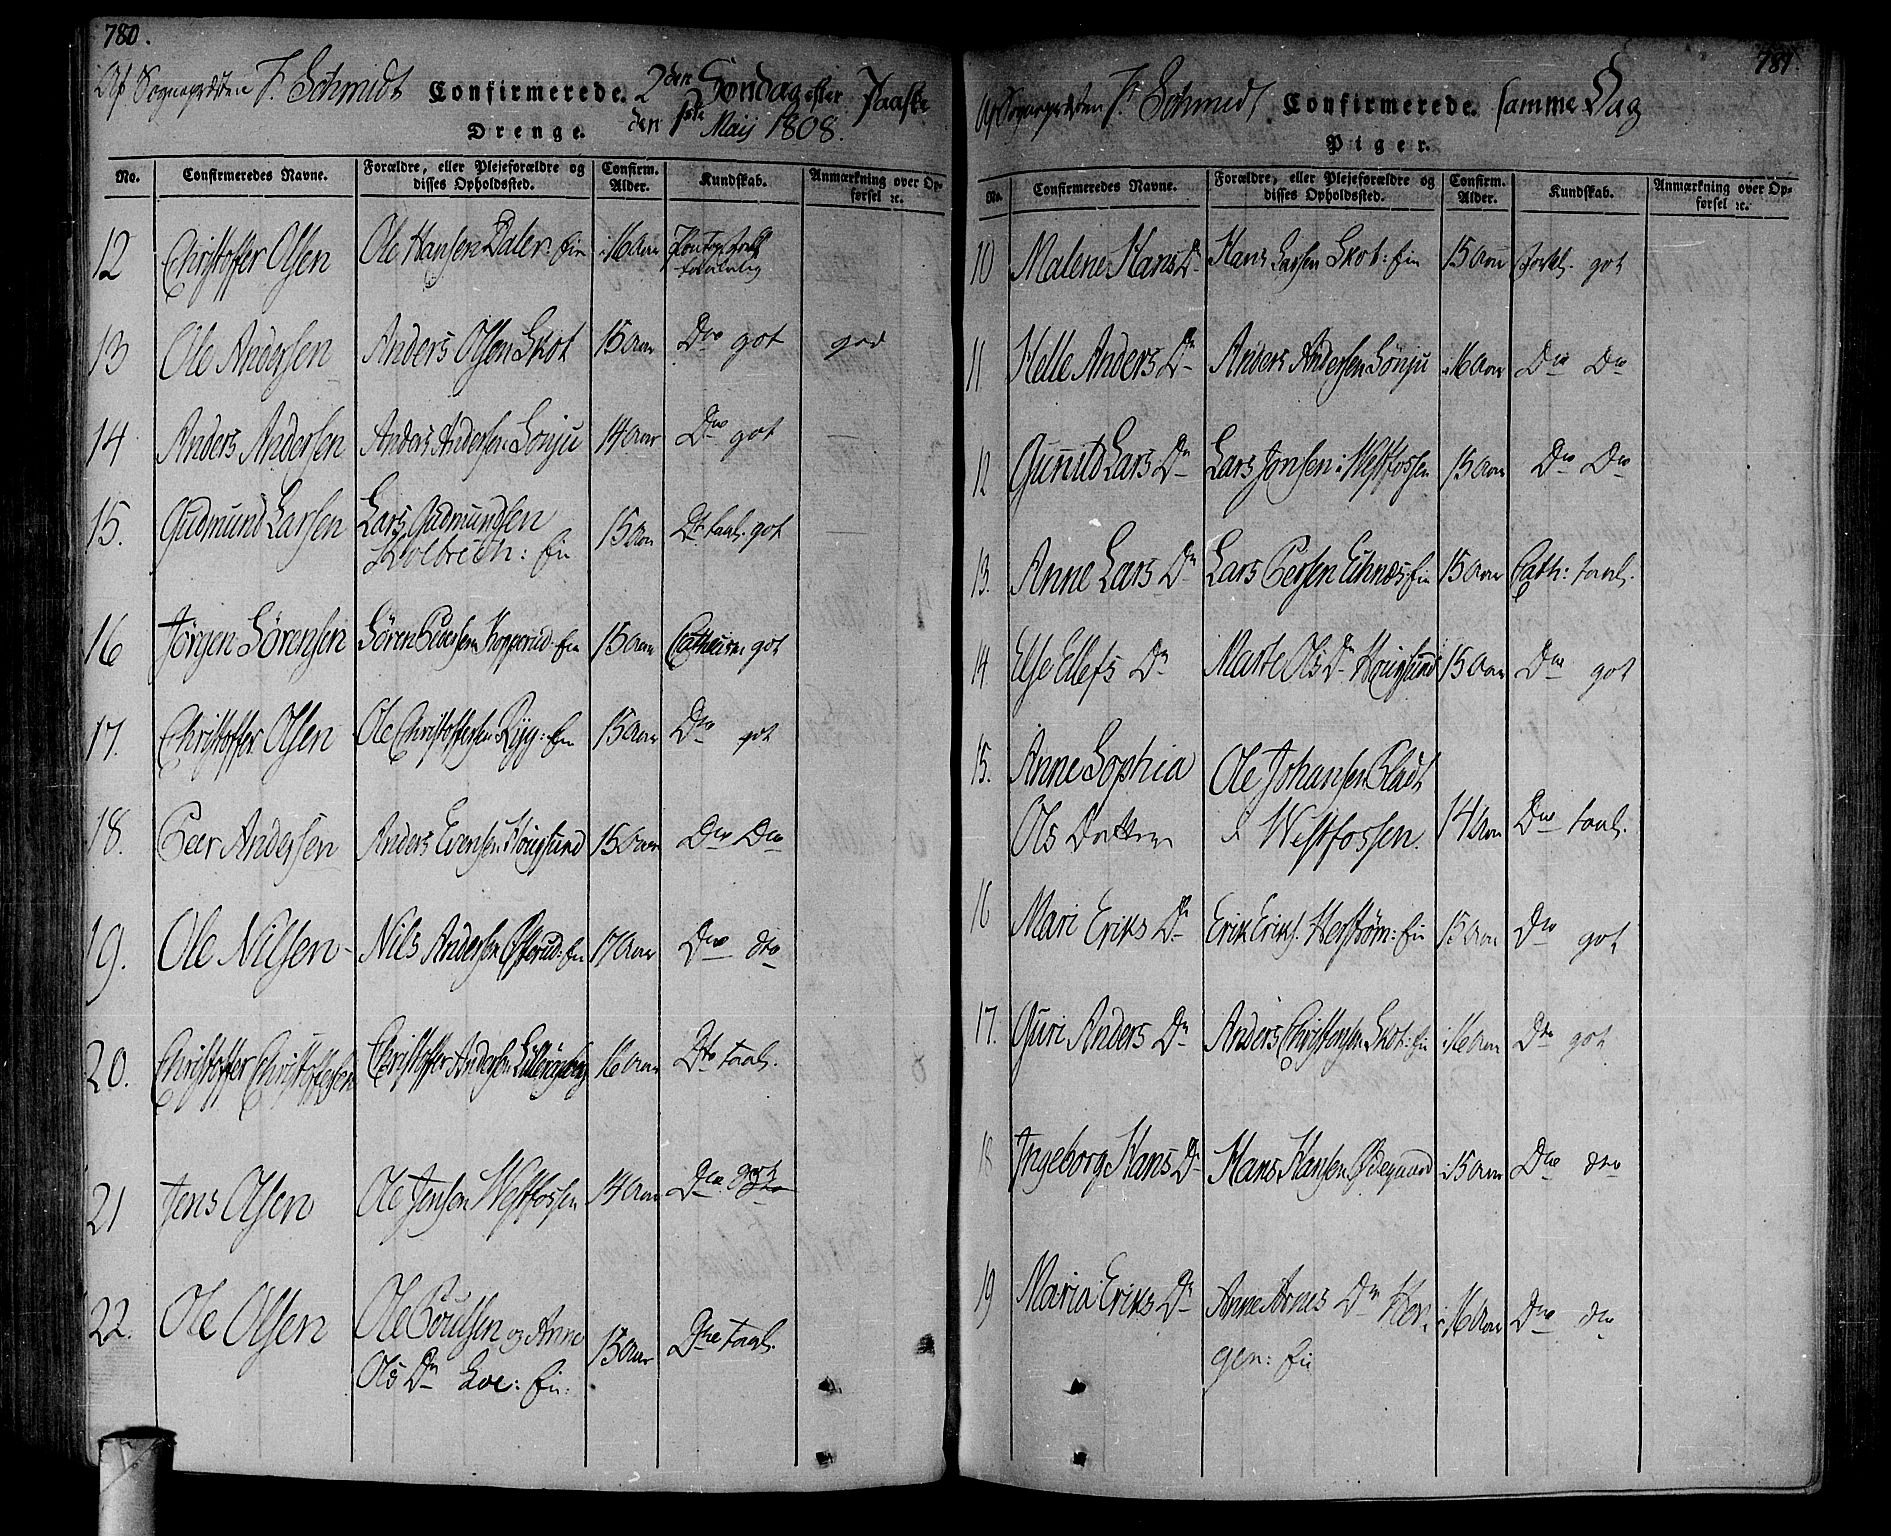 780.
Af Sogneprdsten F. Schmidt Confirmerede. 2den Søndag efter Paaske
Drenge. den 1ste Maij 1808.
No. Confirmeredes Navne. Forældre, eller Plejeforældre og disses Opholdssted. Confirm. Alder. Kundskab. Anmærkning over Opførsel ꝛc.
12 Christoffer Olsen Ole Hansen Daler: Eie 16 Aar taalelig
13 Ole Andersen Anders Olsen Skot 15 Aar Do got god
14 Anders Andersen Anders Andersen Sønju 14 Aar Do got
15. Gudmund Larsen Lars Gudmundsen
Kolbrech: Eie 15 Aar Do taal. got
16 Jørgen Sørensen Søren Pedersen Hopperud Eie 15 Aar got
17. Christoffer Olsen Ole Christoffersen Ryg: Eie 15 Aar Do got
18. Peer Andersen Anders Evensen Hougsund 15 Aar Do Do
19. Ole Nilsen Nils Andersen Eie 17 Aar Do dto
20. Christoffer Christoffersen Christoffer Andersen 16 Aar Dto taal.
21 Jens Olsen Ole Jensen Westfossen 14 Aar Do got
22. Ole Olsen Ole Poulsen og Anne
Ols Dr Loe: Eie: 15 Aar Dto taal.
781.
Af Sogneprdsten F. Schmidt Confirmerede. samme Dag
Piger.
No. Confirmeredes Navne. Forældre, eller Plejeforældre og disses Opholdssted. Confirm. Alder. Kundskab. Anmærkning over Opførsel ꝛc.
10 Malene Hans Dr Hans Larsen Skot: Eie 15 Aar got
11 Helle Anders Dr Anders Andersen Sønju 16 Aar Do Do
12 Gunild Lars Dr Lars Jonsen i Westfossen 15 Aar Do Do
13. Anne Lars Dr Lars Persen Eknæs Eie 15 Aar Cath: taal.
14 Else Ellefs Dr Marte Ols Dr Hougsund 15 Aar Do got
15. Anne Sophia Ole Johansen Bladt
Ols Datter i Westfossen. 14 Aar Do taal.
16 Mari Eriks Dr Erik Eriks. Herstrøm: Eie 15 Aar Do got
17. Guri Anders Dr Anders Christensen Skot: Eie 16 Aar Do got
18 Ingeborg Hans Dr Hans Hansen Ødegaard 15 Aar Do dto
19 Maria Eriks Dr Anne Arnes Dr Hor-
gen: Eie 16 Aar Do do